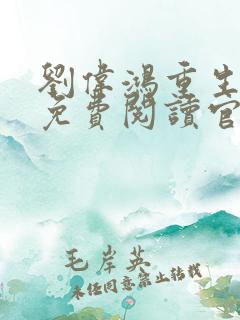 劉偉鴻重生
免費閱讀官
毛岸英
未經同意禁止轉載